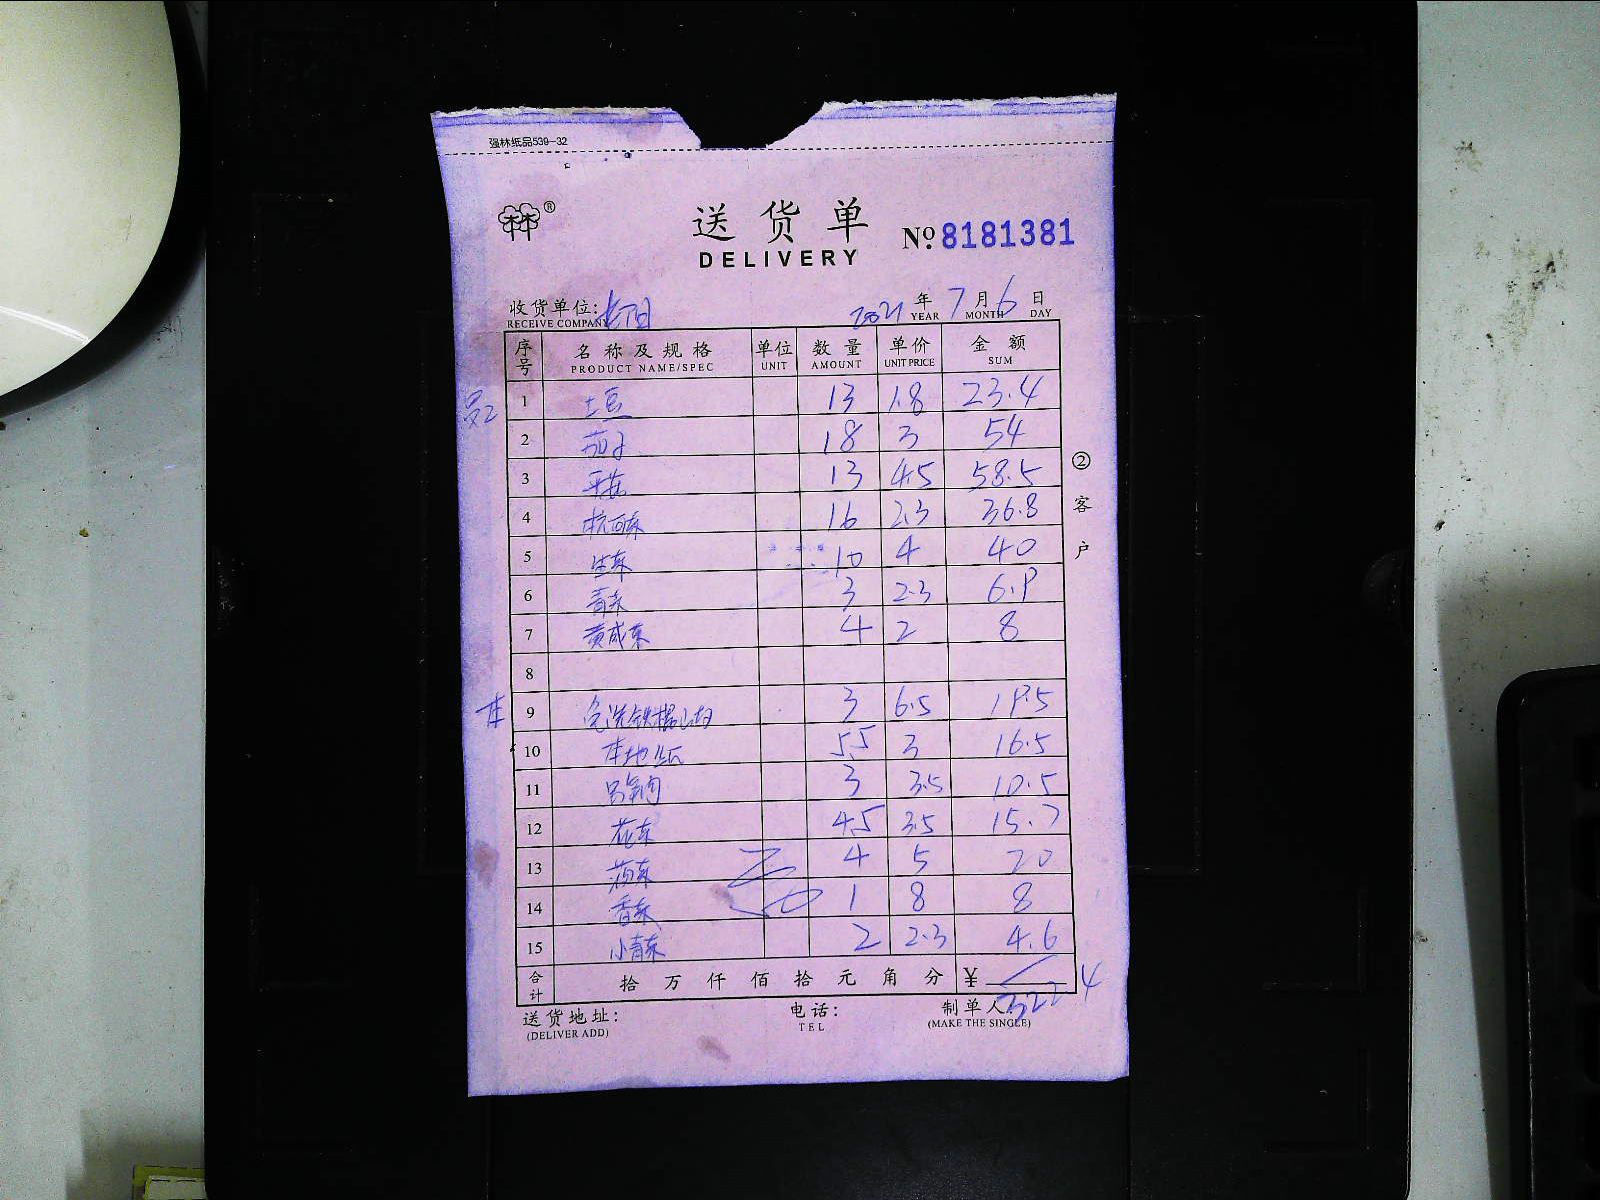 强林纸品539-32
送货单
DELIVERY
№ 8181381
收货单位:
RECEIVE COMPANY
2021年7月6日
YEAR MONTH DAY
序号 名称及规格 单位 数量 单价 金额
PRODUCT NAME/SPEC UNIT AMOUNT UNIT PRICE SUM
1 土豆 13 1.8 23.4
2 茄子 18 3 54
3 13 4.5 58.5
4 16 2.3 36.8
5 生菜 10 4 40
6 青菜 3 2.3 6.9
7 4 2 8
8
9 3 6.5 19.5
10 本地 5.5 3 16.5
11 3 3.5 10.5
12 花菜 4.5 3.5 15.7
13 4 5 20
14 香菜 1 8 8
15 小青菜 2 2.3 4.6
合计 拾万仟佰拾元角分 ¥
322.4
送货地址:
(DELIVER ADD)
电话:
TEL
制单人:
(MAKE THE SINGLE)
②客户